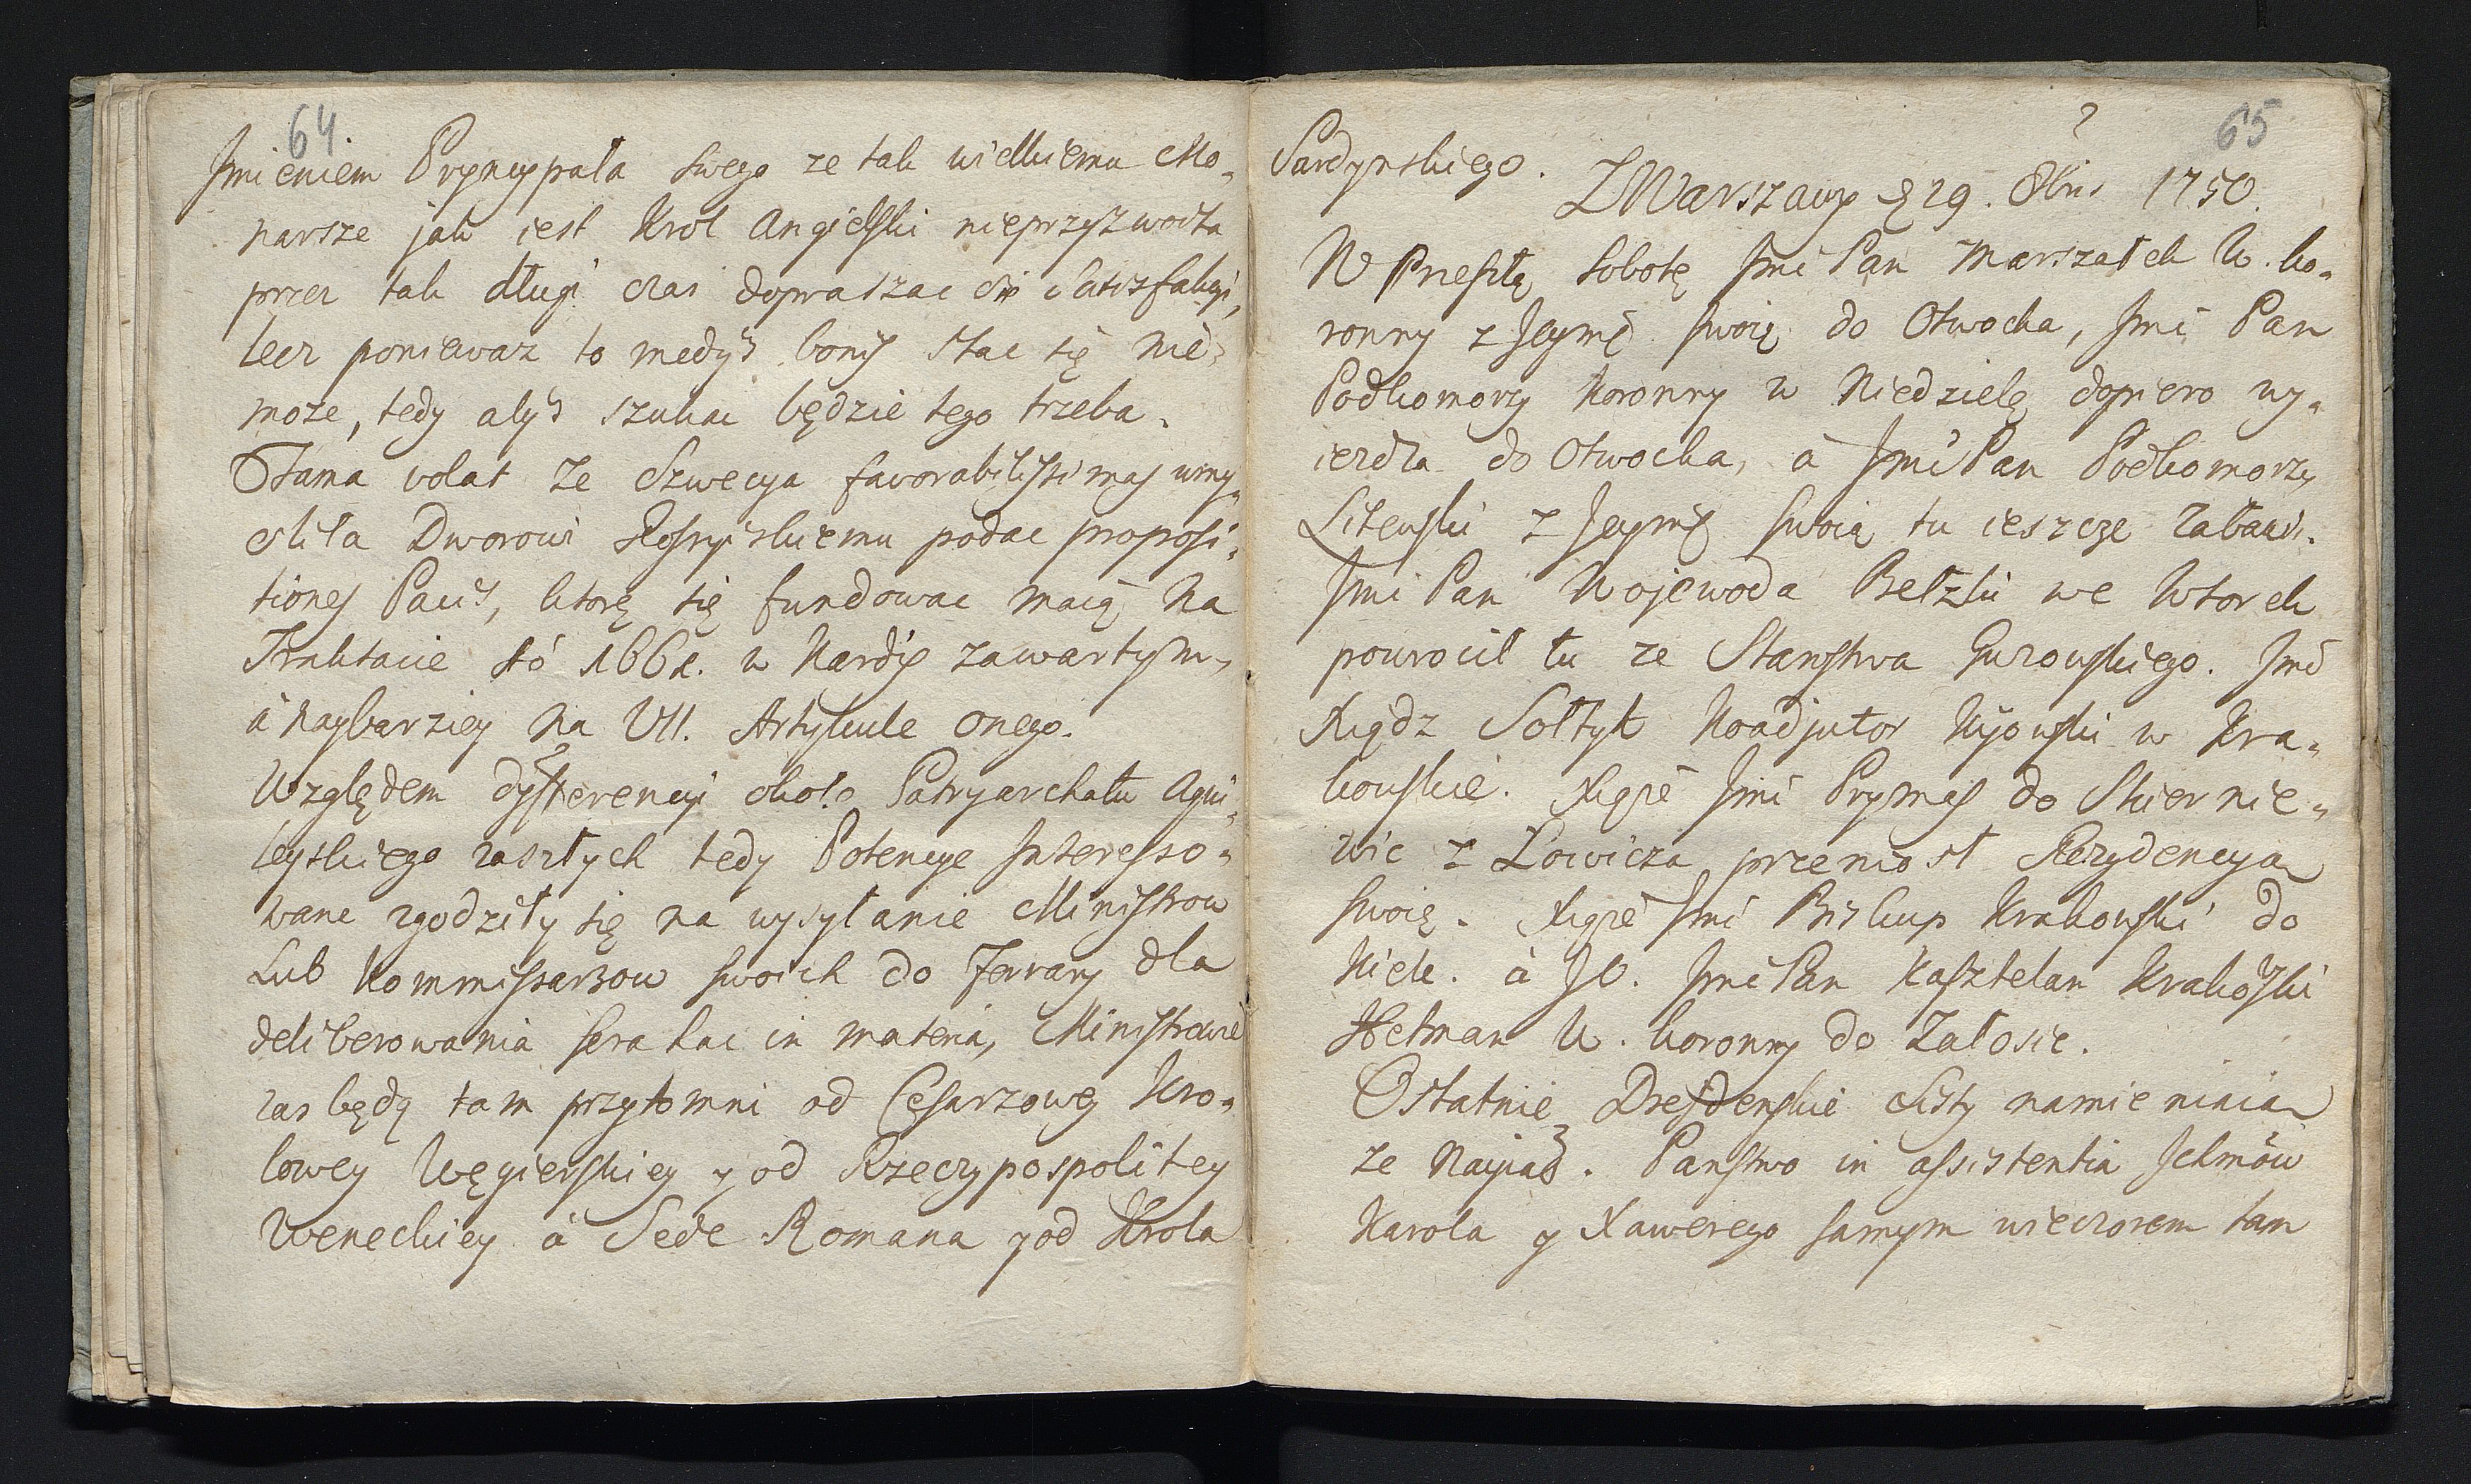 64
Jmieniem Pryncypała swego ze tak wielkiemu Mo-
narsze jak iest Krol Angielski nieprzyzwoita
przez tak długi czas dopraszac się satisfakcyi,
lecz poniewaz to medys bonis stac się nie
moze, tedy alys szukac będzie tego trzeba.
Fama volat ze Szwecya favorabilissimas umy-
sliła Dworowi Rossyiskiemu podac proposi-
tiones Pacis, ktorę się fundowac maią na
Traktacie 1661. w Kardys zawartym,
á naybarziey na VII. Artykule onego.
Względem dyfferencyi około Patryarchatu Aqui-
leyskiego zaszłych tedy Potencye Interesso-
wane zgodziły się na wysyłanie Ministrow
Lub Kommissarzow swoich do Ferrary dla
deliberowania super hac in materia, Ministrowie
zas będą tam przytomni od Cesarzowey Kro-
lowey Węgierskiey y od Rzeczypospolitey
Weneckiey á Sede Romana y od Krola
65
Sardynskiego.
Z Warszawy d 29. 8bris 1750.
W Przeszłą Sobotę Jmć Pan Marszałek W. ko-
ronny z Jeymć swoią do Otwocka, Jmć Pan
Podkomorzy Koronny w Niedzielę dopiero wy-
iezdza do Otwocka, á Jmć Pan Podkomorzy
Litewski z Jeymć swoią tu ieszcze zabawi.
Jmć Pan Wojewoda Bełzki we Wtorek
powrocił tu ze Starostwa Gurowskiego. Jmć
Xiądz Sołtyk Koadjutor Kijowski w Kra-
kowskie. Xiąże Jmć Prymas do Skiernie-
wic z Łowicza przeniosł Rezydencyą
swoię. Xiąże Jmć Biskup Krakowski do
Kielc. á JO. Jmć Pan Kasztelan Krakowski
Hetman W. koronny do Załosic.
Ostatnie Drezdenskie Listy namieniaią
ze Nayias. Panstwo in assistentia Jchmćiow
Karola y Xawerego samym wieczorem tam